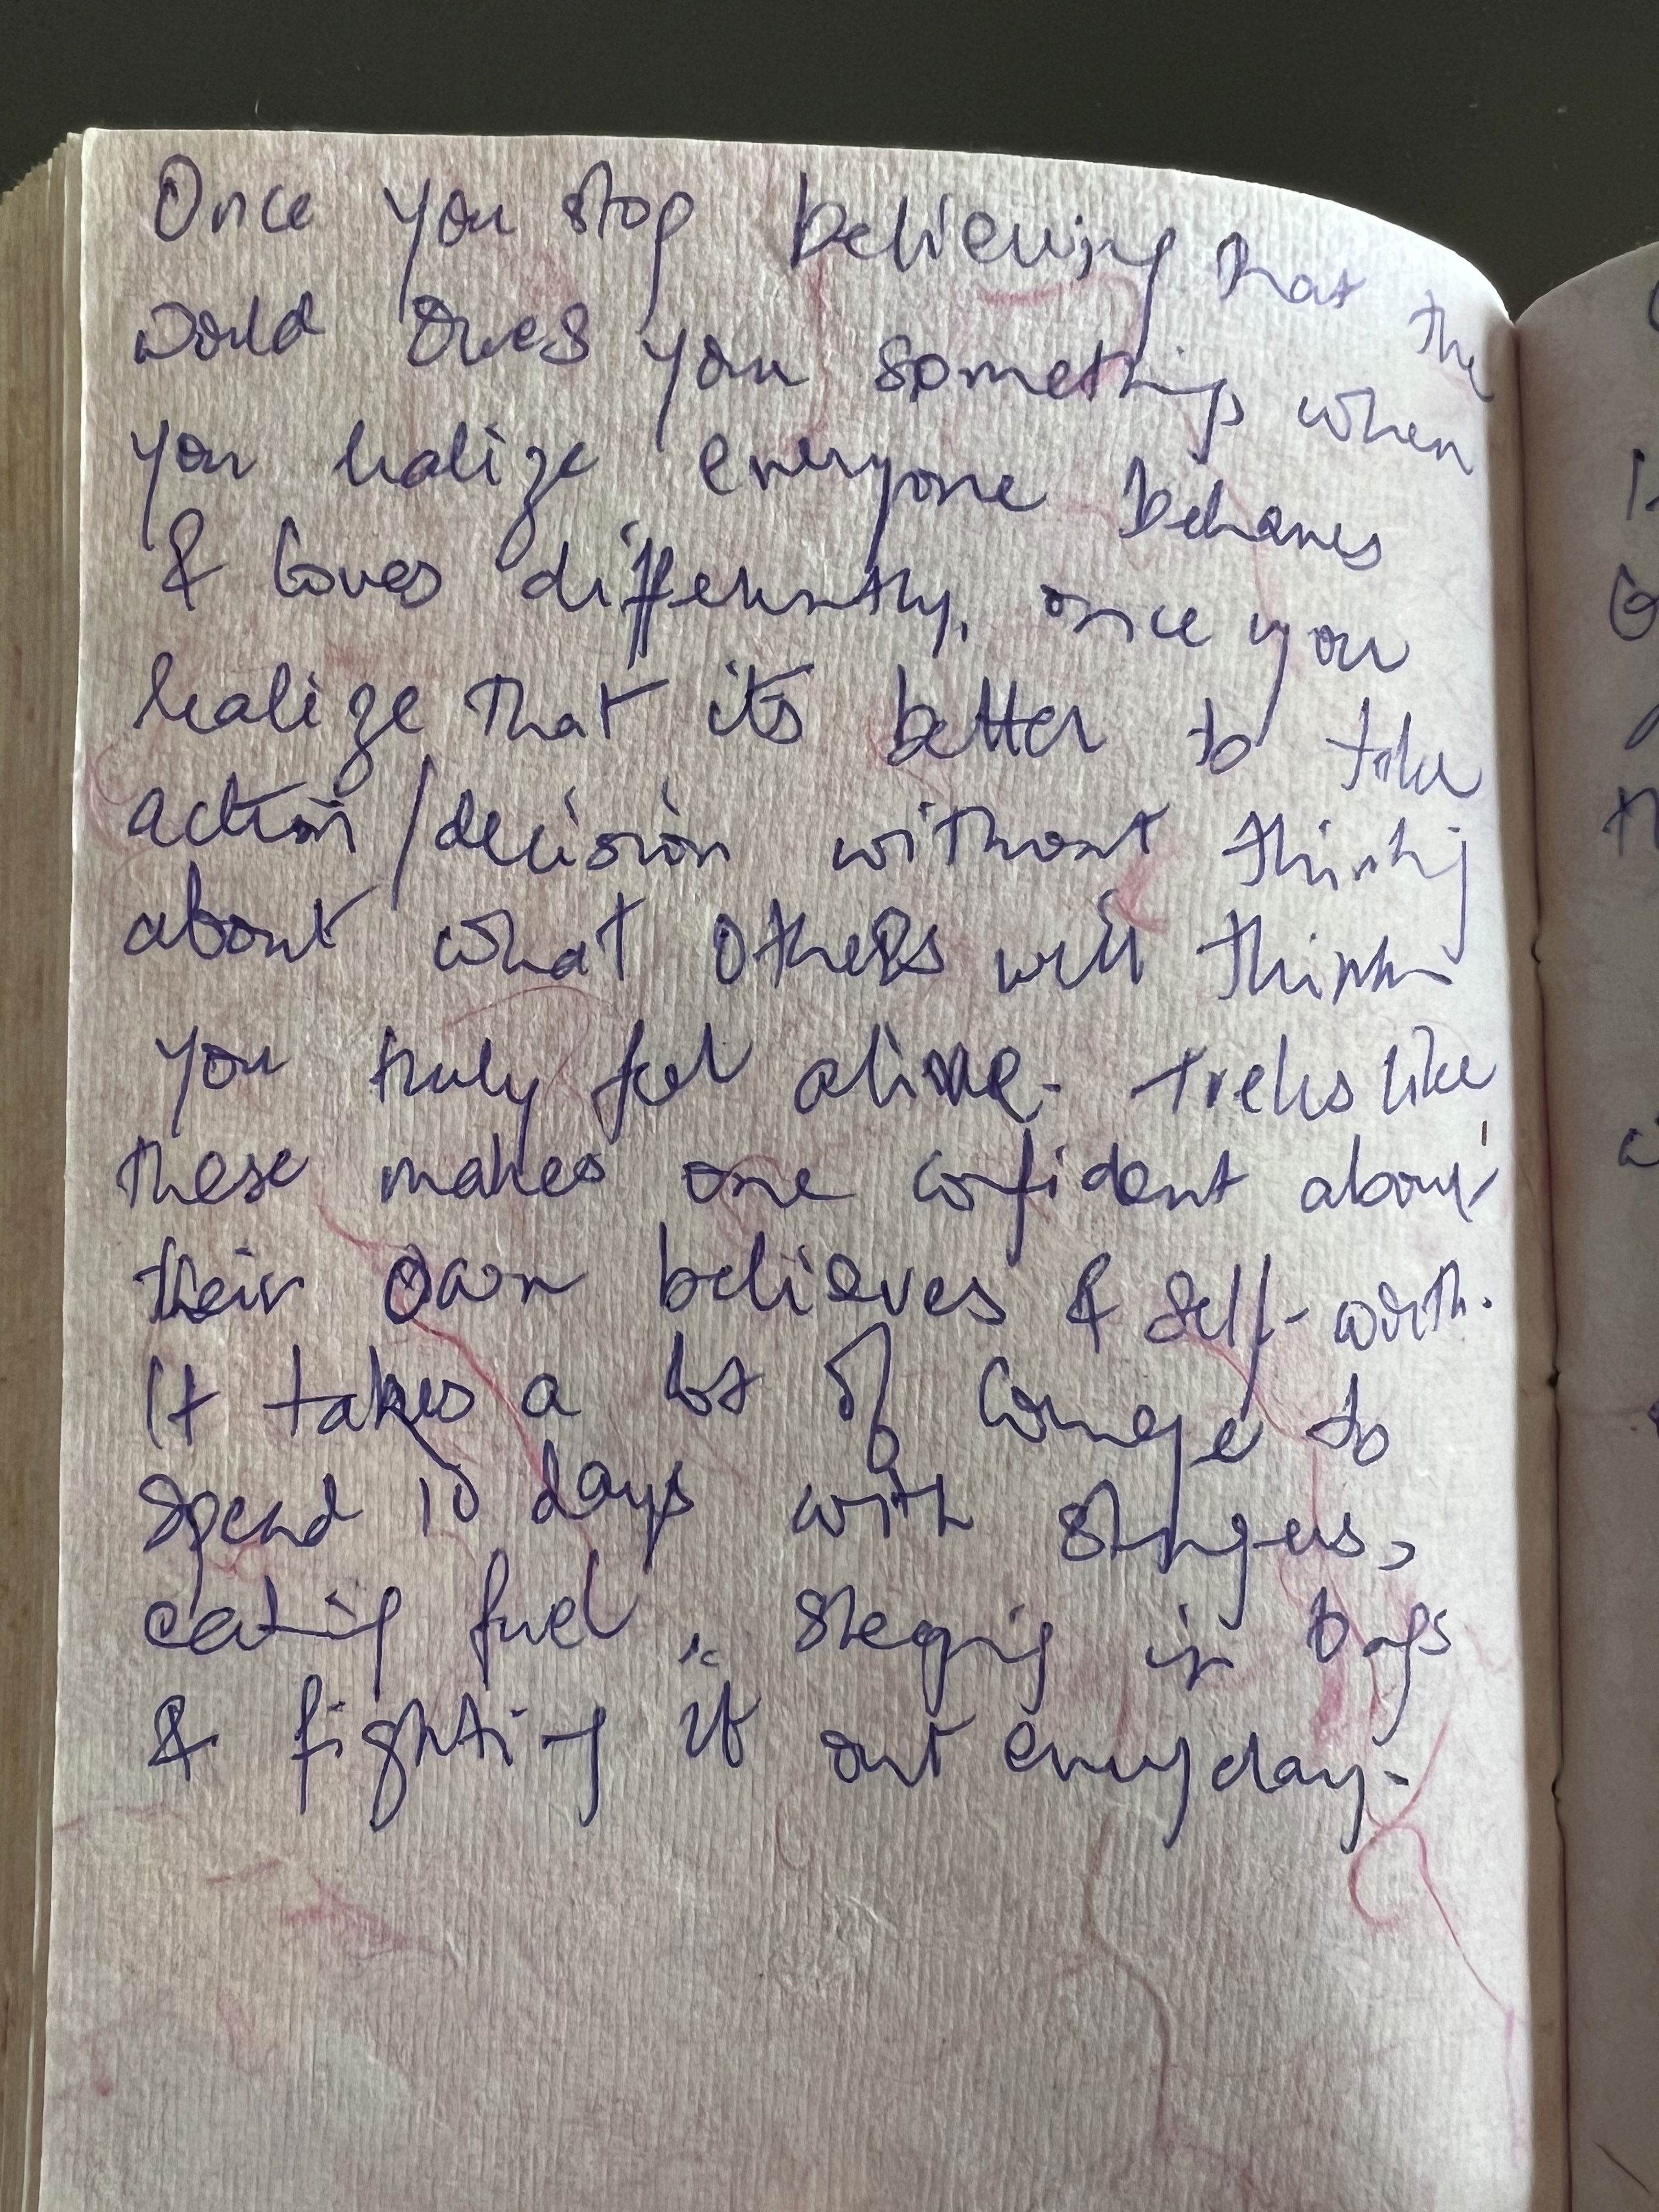 Once you stop believing that the
world owes you something, when
you realize everyone behaves
& loves differently, once you
realize that its better to take
action/decision without thinking
about what others will think
you truly feel alive. Treks like
these makes one confident about
their own believes & self-worth.
It takes a lot of courage to
spend 10 days with strangers,
eating fuel, sleeping in bags
& fighting it out everyday.